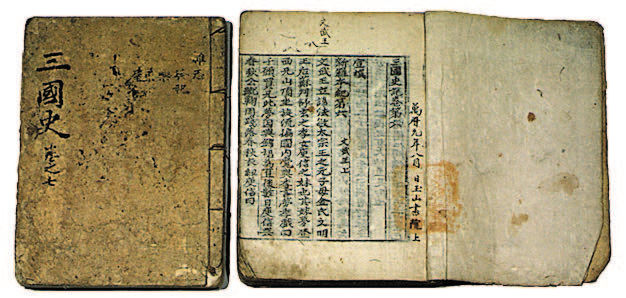 三國史 卷之七
雜志
文武王
八
萬曆元年八月 日玉山書院上
三國史記卷第六
宣撰
新羅本紀第六 文武王上
文武王立諱法敏太宗王之元子母金氏文明
王后蘇判舒玄之季女庾信之妹也其姊夢登
西兄山頂坐旋流徧國內覺與季言夢季戲曰
予願買兄此夢因與錦裙爲直後數日庾信與
春秋公蹴鞠因踐落春秋衣紐庾信曰